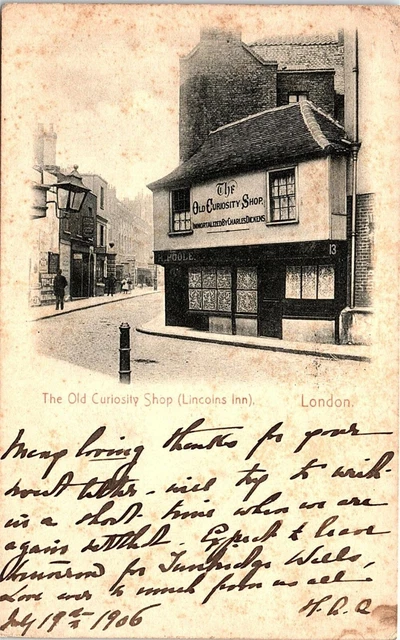 The
Old Curiosity Shop,
IMMORTALIZED BY CHARLES DICKENS
H. POOLE
13
The Old Curiosity Shop (Lincolns Inn). London.
Many loving thanks for your
sweet letter - will try to write
in a short time when we are
again settled. Expect to leave
tomorrow for Tunbridge Wells,
Love ever so much from us all
July 19th 1906 H.A.C